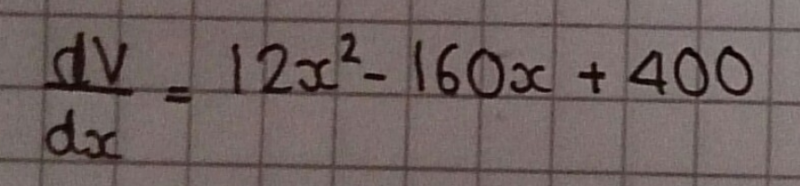 dV/dx = 12x² - 160x + 400